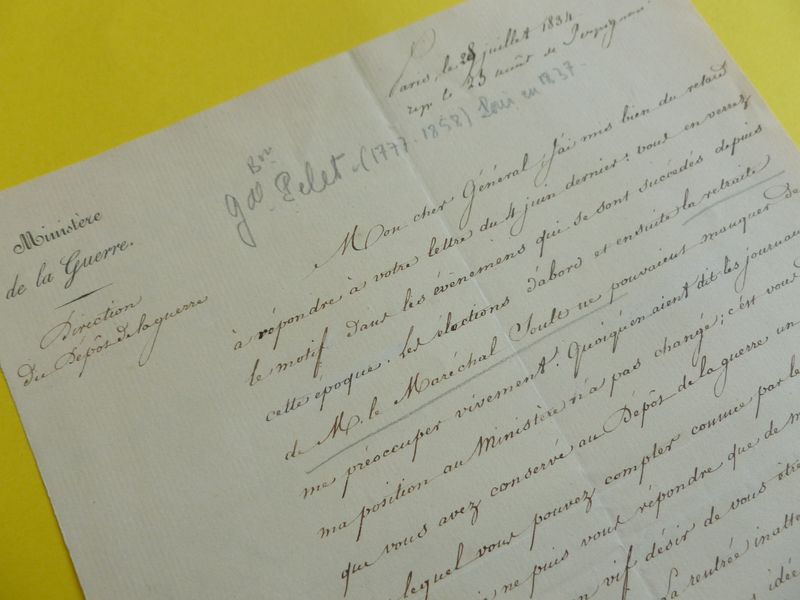 Paris, le 28 juillet 1834
rep. le 23 août de Perpignan
Bon
Gal. Pelet. (1777. 1858) Pair en 1837.
Ministère
de la Guerre.
Direction
du Dépôt de la guerre
Mon cher Général, j'ai mis bien du retard
à répondre à votre lettre du 4 juin dernier: vous en verrez
le motif dans les évènemens qui se sont succédés depuis
cette époque. Les élections d'abord et ensuite la retraite
de M. le Maréchal Soult ne pouvaient manquer de
me préoccuper vivement. Quoiqu'en aient dit les journaux
ma position au Ministère n'a pas changé; c'est vous
que vous avez conservé au Dépôt de la guerre un
lequel vous pouvez compter comme par le
ne puis vous répondre que de m
vif désir de vous être
La rentrée inatte
idée